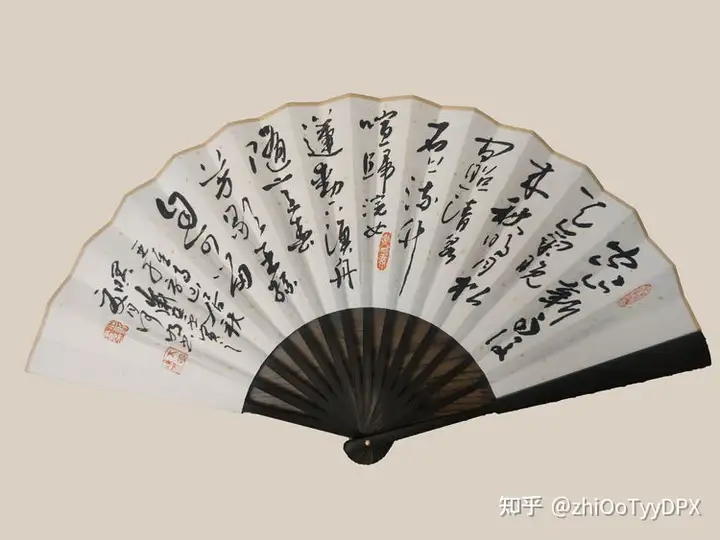 空山新雨後
天氣晚
来秋明月松
间照清泉
石上流竹
喧歸浣女
蓮動下漁舟
隨意春
芳歇王孫
自可留
山居秋
知乎 @zhiOoTyyDPX